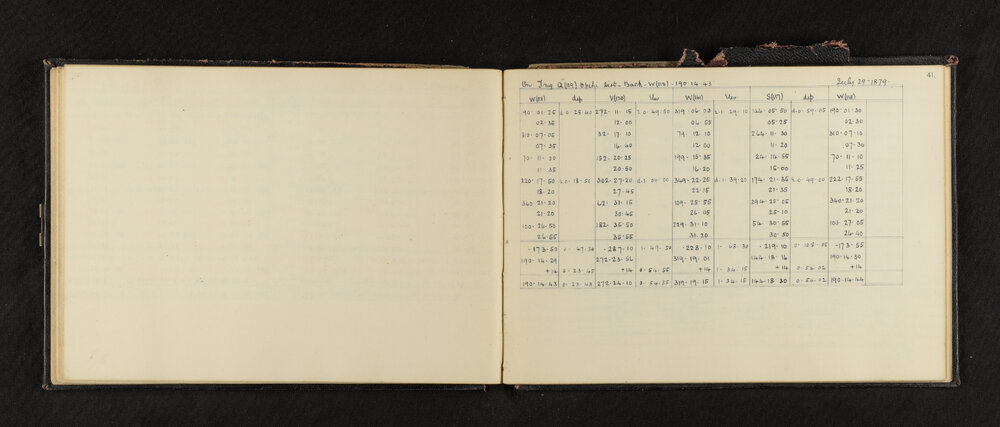 41.
On Trig Q (109) Obchi Sect. Back - W(118) - 190·14·43
W(118) dep V(120) Elev W(121) Elev S(117) dep W(118)
90·01·25 272·11·15 319·06·00 144·05·50 190·01·30
02·35 12·00 06·55 05·25 02·30
310·07·05 32·17·10 79·12·10 264·11·30 310·07·10
07·35 16·40 12·00 11·20 07·30
70·11·00 152·20·25 199·15·35 24·14·55 70·11·10
11·35 20·50 16·20 15·00 11·25
220·17·50 302·27·20 349·22·25 174·21·35 222·17·55
18·20 27·45 22·15 21·35 18·20
340·21·20 62·31·15 109·25·55 294·25·05 340·21·20
21·20 30·45 26·05 25·10 21·20
100·26·50 182·35·50 229·31·10 54·30·55 103·27·05
26·55 35·55 31·20 30·50 26·40
-173·50 0·47·30 -287·10 1·49·50 -228·10 -219·10 0·108·05 -173·55
190·14·29 272·23·56 319·19·01 144·18·16 190·14·30
+14 0·23·45 +14 0·54·55 +14 1·34·15 +14 0·54·02 +14
190·14·43 0·23·45 272·24·10 0·54·55 319·19·15 1·34·15 144·18·30 0·54·02 190·14·44